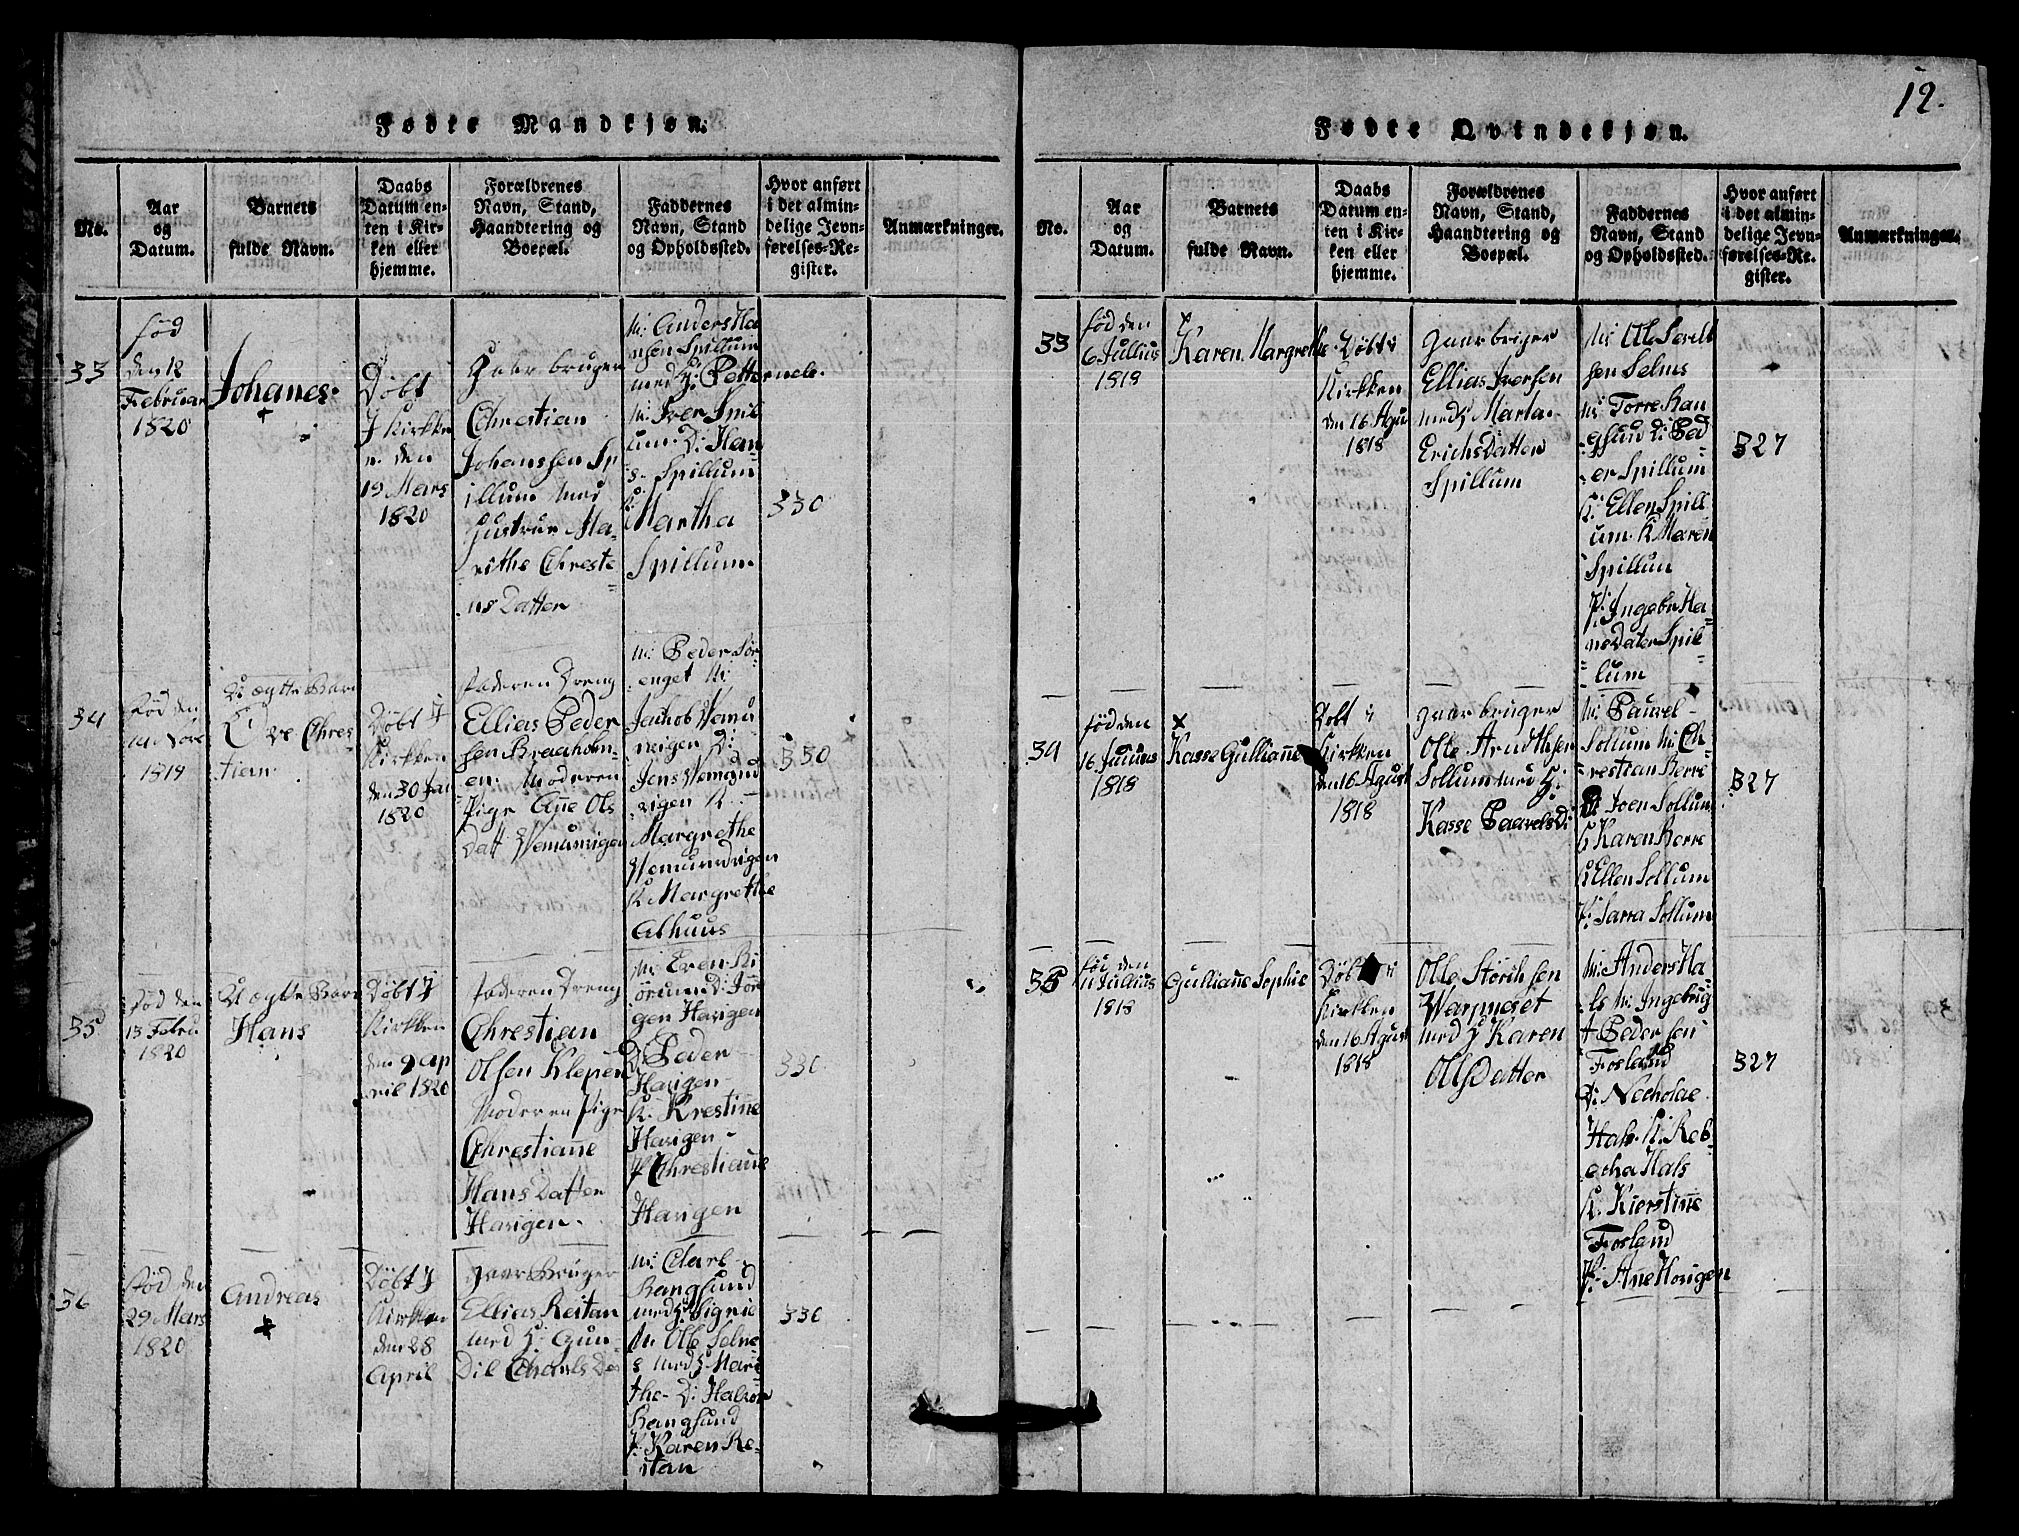 12.
Fødte Mandkjøn.
No.
Aar
og
Datum.
Barnets
fulde Navn.
Daabs
Datum en-
ten i Kir-
ken eller
hjemme.
Forældrenes
Navn, Stand,
Haandtering og
Boepæl.
Faddernes
Navn, Stand
og Opholdssted.
Hvor anført
i det almin-
delige Jevn-
førelses-Re-
gister.
Anmærkninger.
33
Fød
den 12
Februar
1820
Johanes.
Døbt
J Kirkke
n. den
19 Mars
1820
Gaar bruger
Chrestian
Johanssen Sp
illum med
Hustrue Ma-
rithe Chreste
ns Datter
M: Anders Ha
nsen Spillum
med H: Petternele.
M: Iver Spil
um. D: Han
s. Spillum
K:
Martha
Spillum
330
34
Fød den
1819
U ægtte Barn
Ove Chres-
tian
Døbt J
Kirkken
den 30 Jan
1820
Faderen Dreng
Ellias Peder
sen Braaholm-
en. Moderen
Pige Ane Ols
Datt Vemunvigen
M: Peder Sør-
enget M:
Jachob Vemu
nvigen D:
Jens Vemund
vigen K.
Margrethe
Vemundvigen
K Margrethe
Alhuus
330
35
Fød den
13 Febru
1820
U ægtte Barn
Hans
Døbt J
Kirkken
den 9 Ap
ril 1820
Faderen Dreng
Chrestian
Olsen Klepen
Moderen Pige
Chrestiane
Hans Datter
Havigen.
M: Even
D: Jør
gen Havigen
D: Peder
Havigen
K. Krestine
Havigen
P Chrestiane
Havigen
330
36
Fød den
29 Mars
1820
Andreas
Døbt J
Kirkken
den 28
April
Gaar Bruger
Ellias Reitan
med H: Gun-
Dil Charls Da
M: Charl
Bangsund
med H: Signie
M: Olle Selne
s med H. Mari
the- D: Halvor
Bangsund
P. Karen Re-
itan
330
Fødte Qvindekjøn.
No.
Aar
og
Datum.
Barnets
fulde Navn.
Daabs
Datum en-
ten i Kir-
ken eller
hjemme.
Forældrenes
Navn, Stand,
Haandtering og
Boepæl.
Faddernes
Navn, Stand
og Opholdssted.
Hvor anført
i det almin-
delige Jevn-
førelses-Re-
gister.
Anmærkninger.
33
Fød den
6 Jullius
1818
Karen Margrethe
Døbt i
Kirkken
den 16 Agus
1818
Gaar briger
Ellias Iversen
med H Marta
Erichs Datter
Spillum
M: Ole
sen Selnis
M: Torre Ban
gsund D: Ped
er Spillum
K: Ellen Spill
um. K Maren
Spillum
P: Ingebr Ha-
nsDater Spil-
lum
327
34
Fød den
16 Julius
1818
Kasse Gulliane
Døbt i
Kirkken
den 16 Agust
1818
Gaar bruger
Olle Arndthsen
Sollum med H:
Kasse Paavels D:
M: Pauvel
Sollum M: Ch-
restian Berre
D: Joen Sollum
K Karen Berre
K Ellen Sollum
P: Sarra Sollum
327
35
Fød den
11 Jullius
1818
Gulliane Sophie
Døbt i
Kirkken
den 16 Agust
1818
Olle Størchsen
Warpneset
med H Karen
Olls Datter
M: Anders Ha
ls M: Ingebrig
t Pedersen
Fosland
D: Necholae
Hals. K: Reb-
echa Hals
K. Kierstine
Fosland
P: Ane Havigen
327